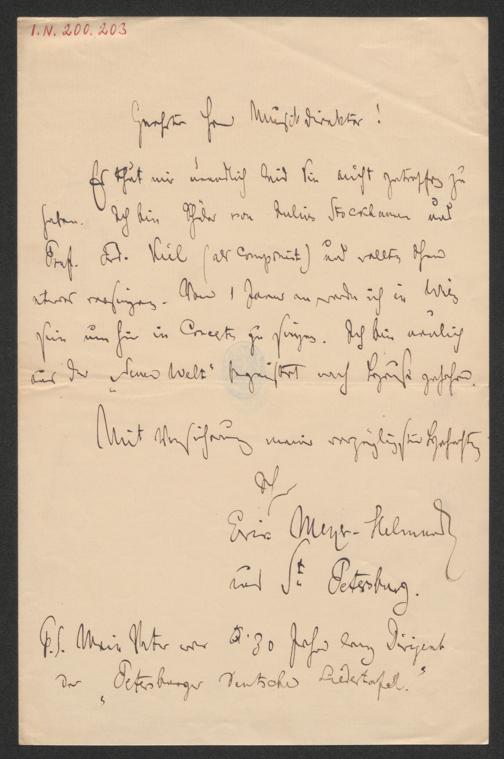 I.N. 200.203
Geehrter Herr Musikdirektor!
Es thut mir unendlich leid Sie nicht getroffen zu
haben. Ich bin Schüler von Julius Stockhausen und
Prof. Fr. Kiel (als Componist) und wollte Ihnen
etwas vorsingen. Vom 1 Januar an werde ich in Wien
sein um hier in Concerten zu singen. Ich bin neulich
aus der "Neuen Welt" nach
Mit Versicherung meiner vorzüglichsten Hochachtung
Eric Meyer-Helmund
aus St. Petersburg.
P.S. Mein Vater war 30 Jahre lang Dirigent
der "Petersburger Deutschen Liedertafel."